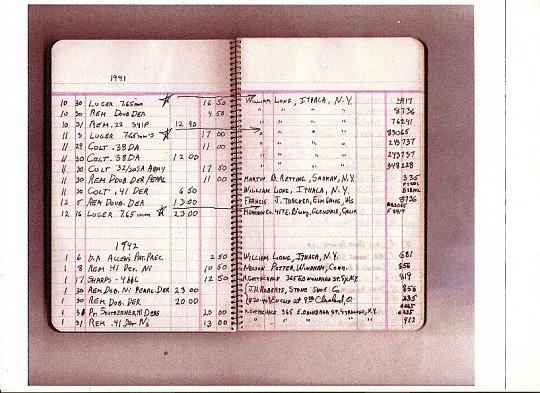 1941
10 30 LUGER 7.65mm 16 50 WILLIAM LONG, ITHACA, N.Y. 3917
10 30 REM DOUB DER 4 50 " " " " 8736
10 31 REM .22 12 90 " " " " 76241
11 3 LUGER 7.65mm 17 00 " " " " 83065
11 29 COLT .38 DA 11 00 " " " " 243737
11 30 COLT .38 DA 12 00 " " " " 243737
11 30 COLT 32/20SA ARMY 17 50 " " " " 348228
11 30 REM DOUB DER PEARL 11 00 MARTIN B. RETTING, N.Y. 335
11 30 COLT .41 DER 6 50 WILLIAM LONG, ITHACA, N.Y.
12 5 REM DOUB. DER 13 00 FRANCIS J. ELM GROVE, WIS 8736
12 16 LUGER 7.65 mm 23 00 CO. 417 E. B'WAY, GLENDALE, CALIF.
1942
1 6 D.A ALLEN'S PAT. PREC. 2 50 WILLIAM LONG, ITHACA, N.Y. 681
1 8 REM 41 DER. NI 10 50 NELSON POTTER, CONN. 856
1 17 SHARPS - 4 BBL 12 50 R.GOTTSCHALK 365 819
1 30 REM DOB. NI PEARL DER 23 00 (J.H. ROBERTS, STONE SHOE CO 856
1 30 REM DOB. DER 20 00 EUCLID AT 9TH CLEVELAND, O. 335
1 20 00 365 E. ONONDAGA ST. SYRACUSE, N.Y. 6235
1 31 REM .41 13 00 " " " " 912